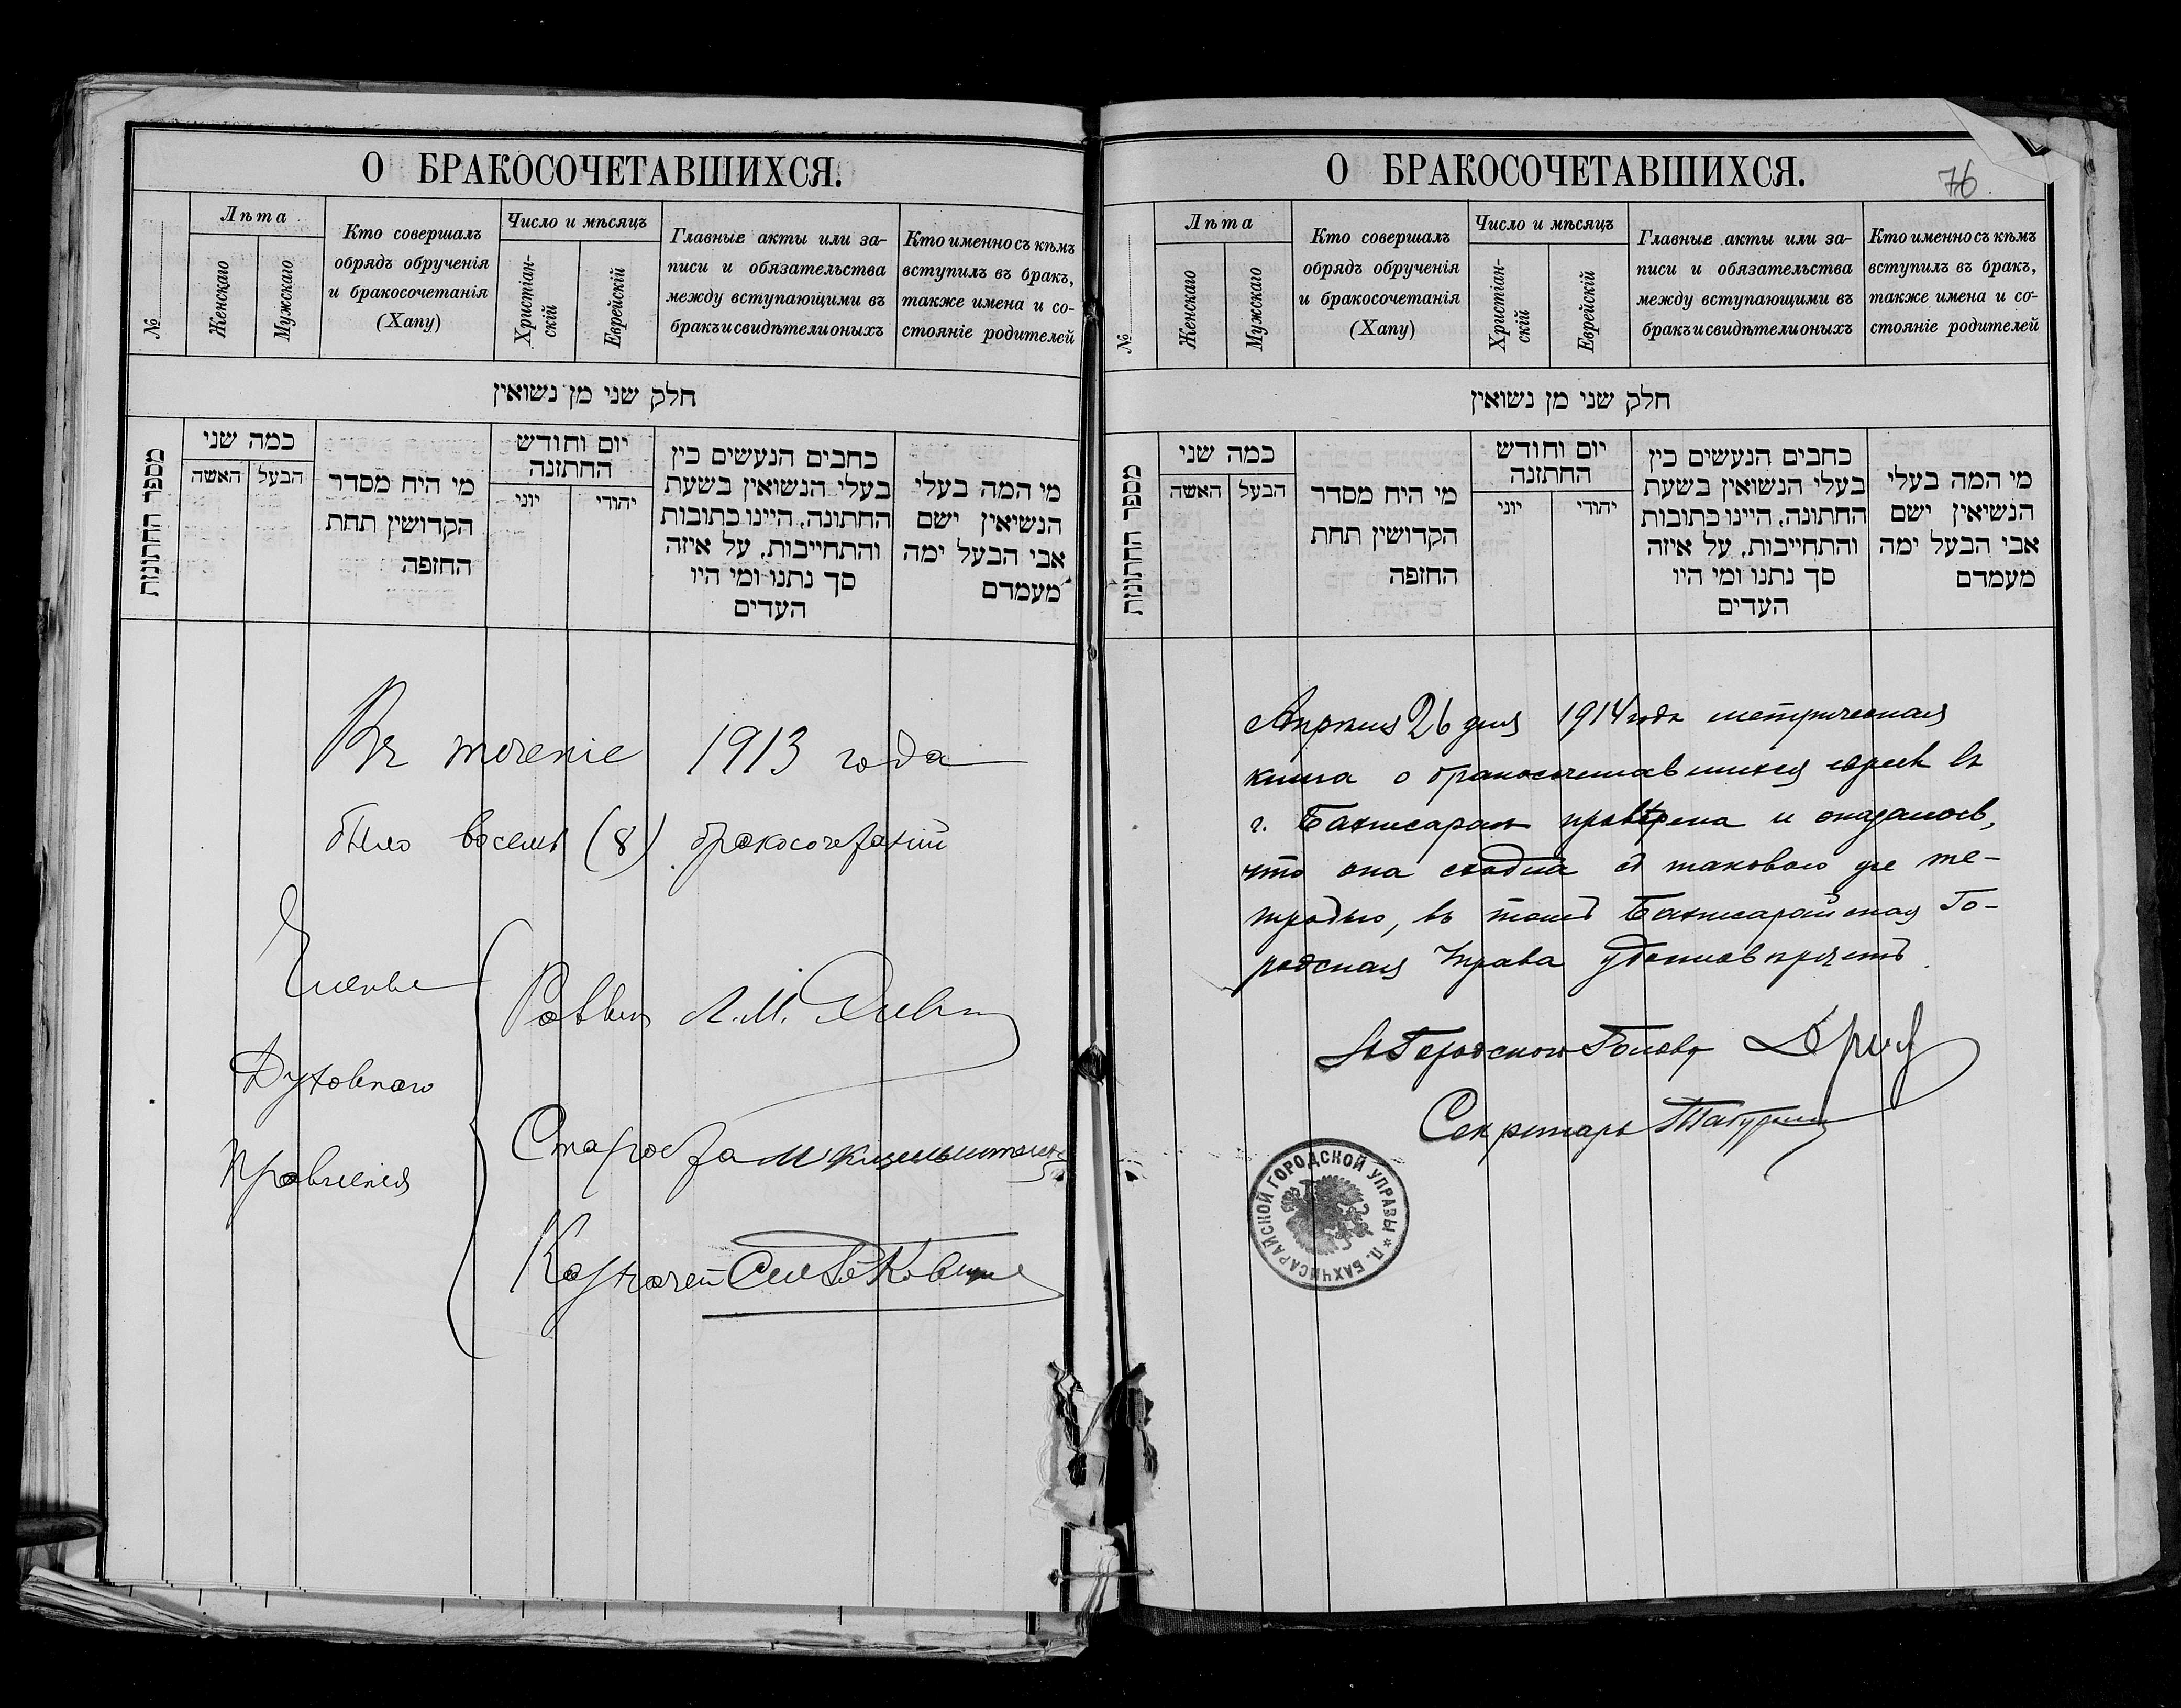 О БРАКОСОЧЕТАВШИХСЯ.
№
Лѣта
Женскаго
Мужскаго
Кто совершалъ
обрядъ обрученія
и бракосочетанія
(Хапу)
Число и мѣсяцъ
Христіан-
скій
Еврейскій
Главные акты или за-
писи и обязательства
между вступающими въ
бракъ и свидѣтели оныхъ
Кто именно съ кѣмъ
вступилъ въ бракъ,
также имена и со-
стояніе родителей
חלק שני מן נשואין
מספר החתונות
כמה שני
האשה
הבעל
מי היח מסדר
הקדושין תחת
החזפה
יום וחודש
החתזנה
יוני
יהודי
כחבים הנעשים כין
בעלי הנשואין בשעת
החתונה, היינו כתובות
והתחייבות, על איזה
סך נתנו ומי היו
העדים
מי המה בעלי
הנשיאין ישם
אבי הבעל ימה
מעמדם
Въ теченіе 1913 года
было восемь (8) бракосочетаній
Члены
Духовнаго
Правленія
Раввин Л.М.
Староста М
Казначей
О БРАКОСОЧЕТАВШИХСЯ.
76
№
Лѣта
Женскаго
Мужскаго
Кто совершалъ
обрядъ обрученія
и бракосочетанія
(Хапу)
Число и мѣсяцъ
Христіан-
скій
Еврейскій
Главные акты или за-
писи и обязательства
между вступающими въ
бракъ и свидѣтели оныхъ
Кто именно съ кѣмъ
вступилъ въ бракъ,
также имена и со-
стояніе родителей
חלק שני מן נשואין
מספר החתונות
כמה שני
האשה
הבעל
מי היח מסדר
הקדושין תחת
החזפה
יום וחודש
החתזנה
יוני
יהודי
כחבים הנעשים כין
בעלי הנשואין בשעת
החתונה, היינו כתובות
והתחייבות, על איזה
סך נתנו ומי היו
העדים
מי המה בעלי
הנשיאין ישם
אבי הבעל ימה
מעמדם
Апрѣля 26 дня 1914 года метрическая
книга о бракосочетавшихся евреевъ въ
г. Бахчисараѣ провѣрена и оказалось,
что она сходна съ таковою же те-
традью, въ томъ Бахчисарайская Го-
родская Управа удостовѣряетъ.
Городской Голова
Секретарь
П. БАХЧИСАРАЙСКОЙ ГОРОДСКОЙ УПРАВЫ *